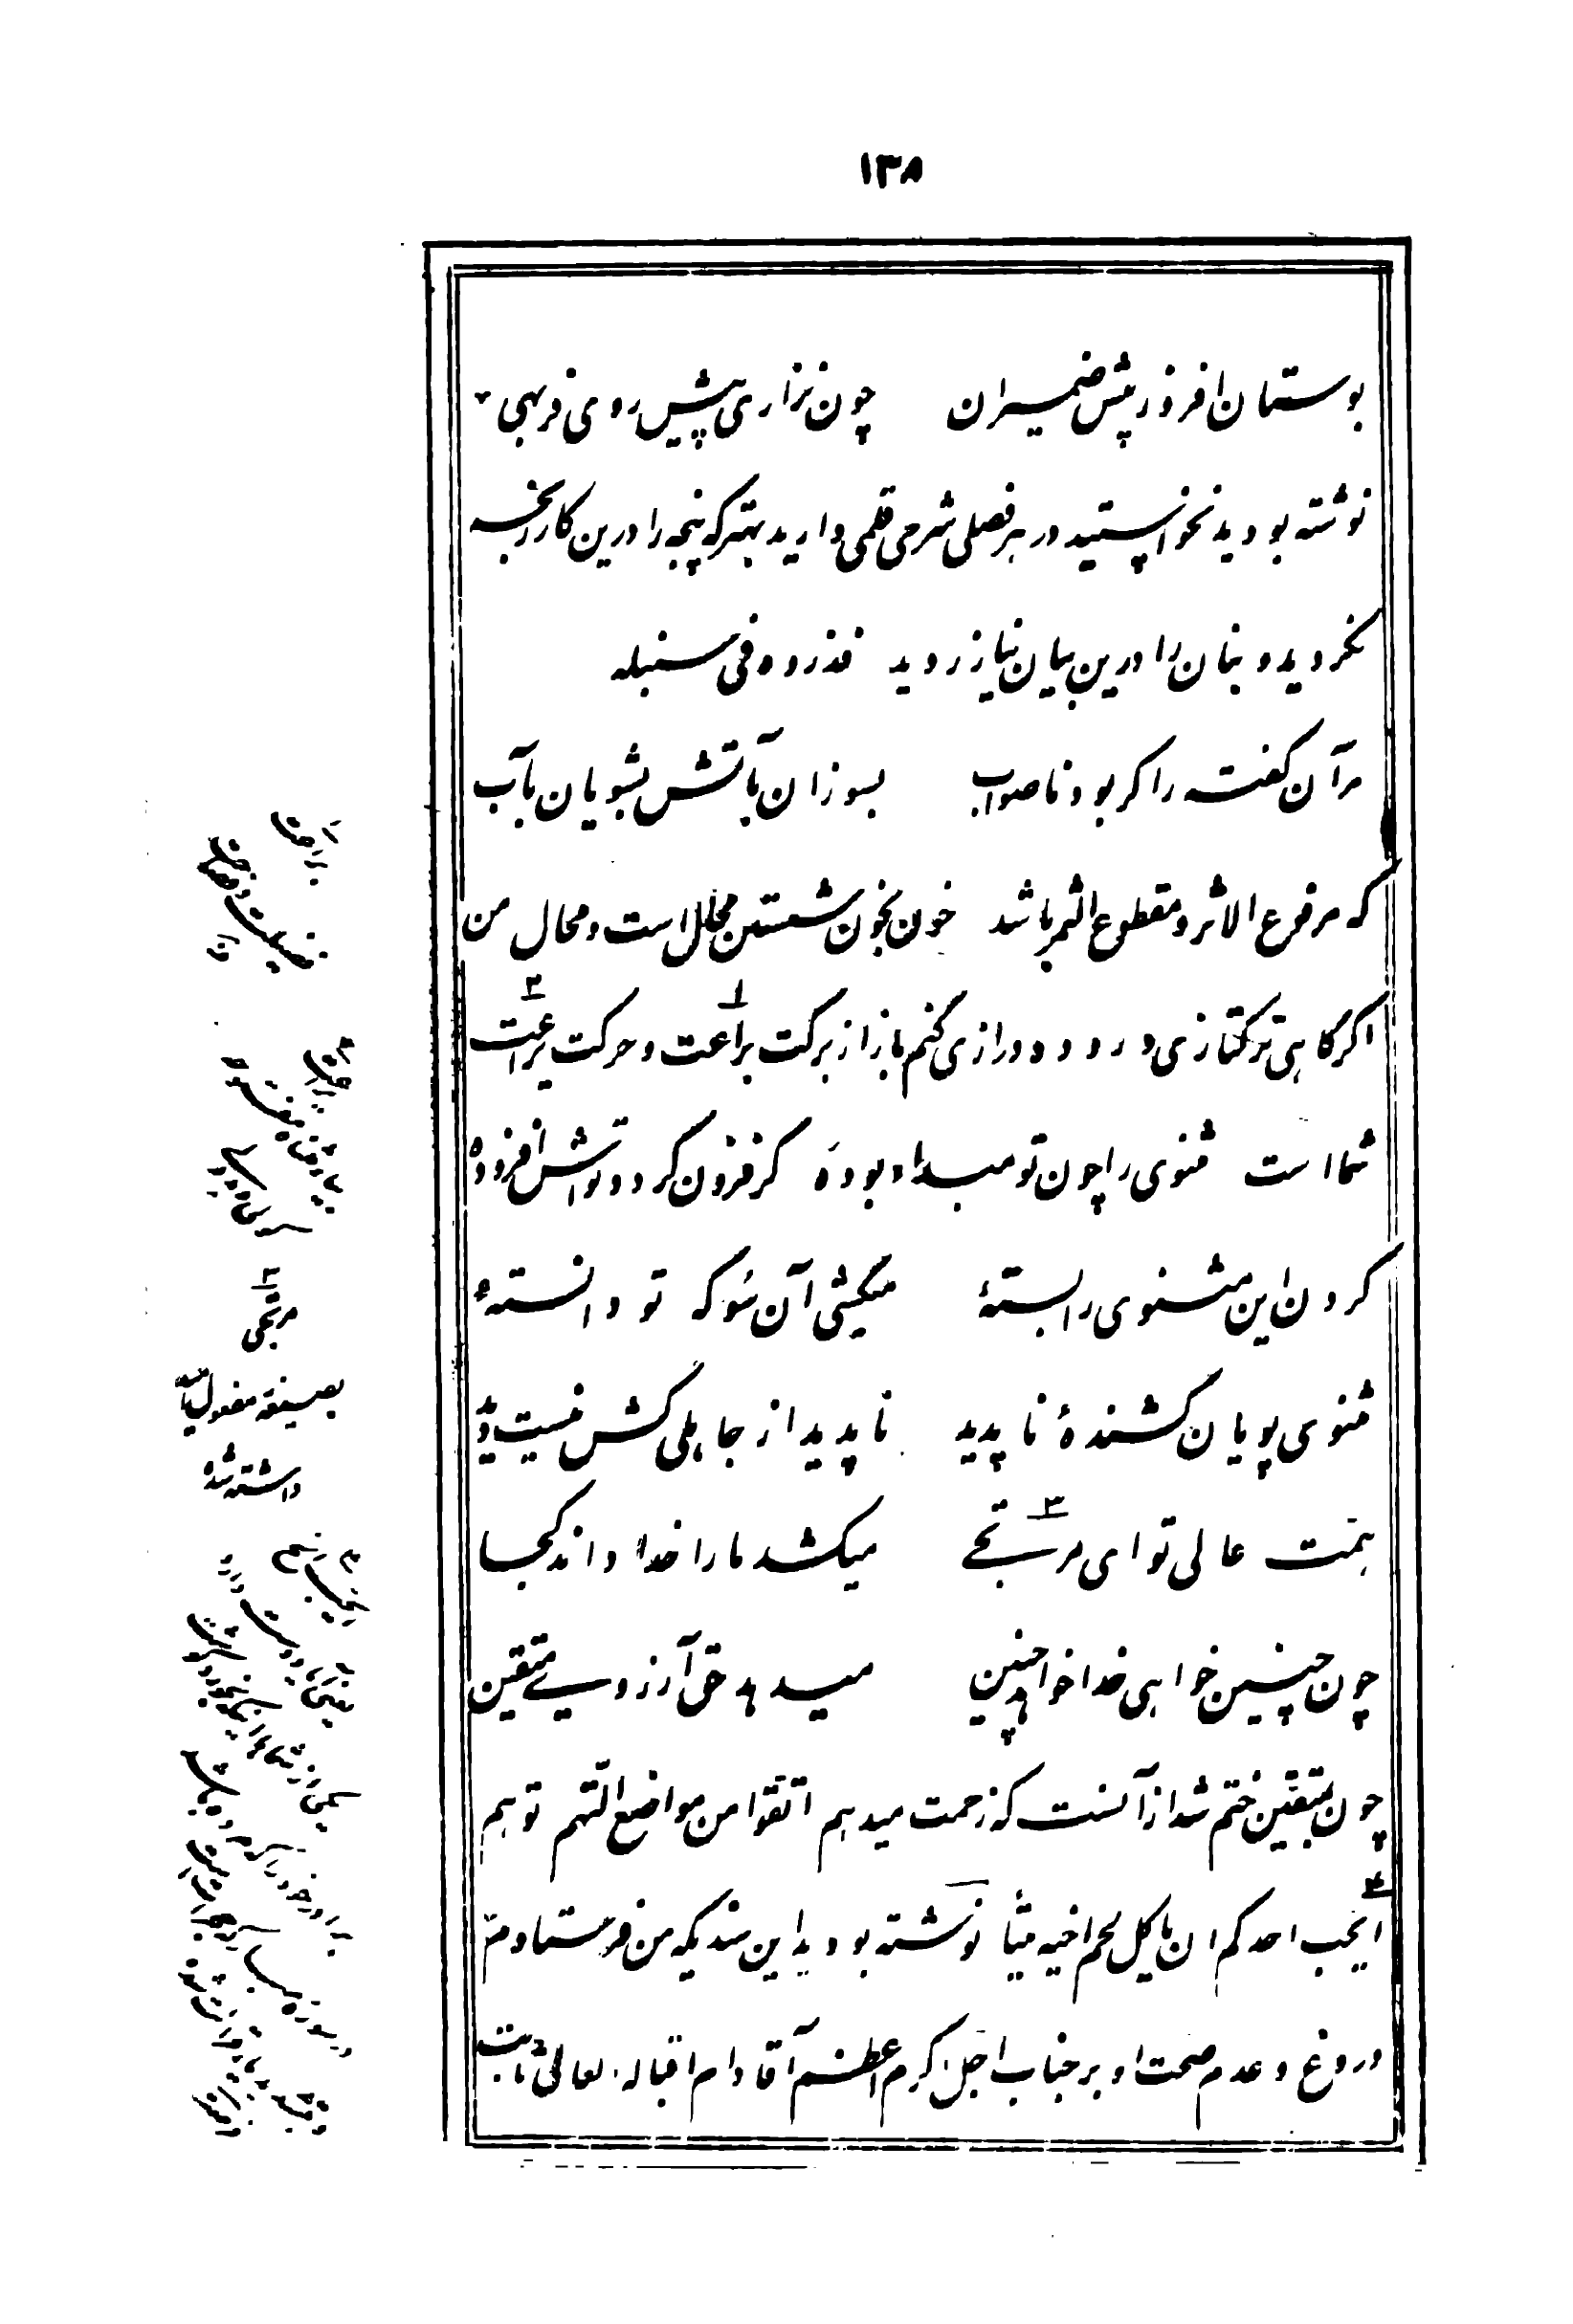 ۱۳۸
بوستان افروز پیش ضمیران چون نزاری پیش روی فربهی
نوشته بودید نخواستید در هر فصلی شرحی قلمی دارید بهتر که پنجه را درین کار رنجه
نکردید و بنان را درین بیان نیازردید فذروه فی سنبله
مر آن گفته را کر بود ناصواب بسوزان بآتش بشویان بآب
که مرفوع الاثر و مقطوع الثمر باشد خون بخون شستن محال است و محال من
اکر کاهی ترکتازی و ده درازی کنم باز از برکت براعت و حرکت یراعت
شما است مثنوی را چون تو مبداء بوده کر فزون کردد تواش افزوده
کردن این مثنوی را بستهٔ میکشی آن سو که تو دانستهٔ
مثنوی پویان کشندهٔ ناپدید ناپدید از جاهلی کش نیست دید
همت عالی تو ای مرتجی میکشد ما را خدا داند کجا
چون چنین خواهی خدا خواهد چنین میدهد حق آرزوی متقین
چون بمتقین ختم شد از آنست که زحمت میدهم اتقوا من مواضع التهم تو هم
ایحب احدکم ان یاکل لحم اخیه میتاً نوشته بودید این سندیکه من فرستادم
دروغ و عدم صحت او بر جناب اجل اکرم اعظم آقا دام اقباله العالی ثابت
براعت
فضیلت و فصاحت
مرتجی
بصیغه مفعول
داشته شده